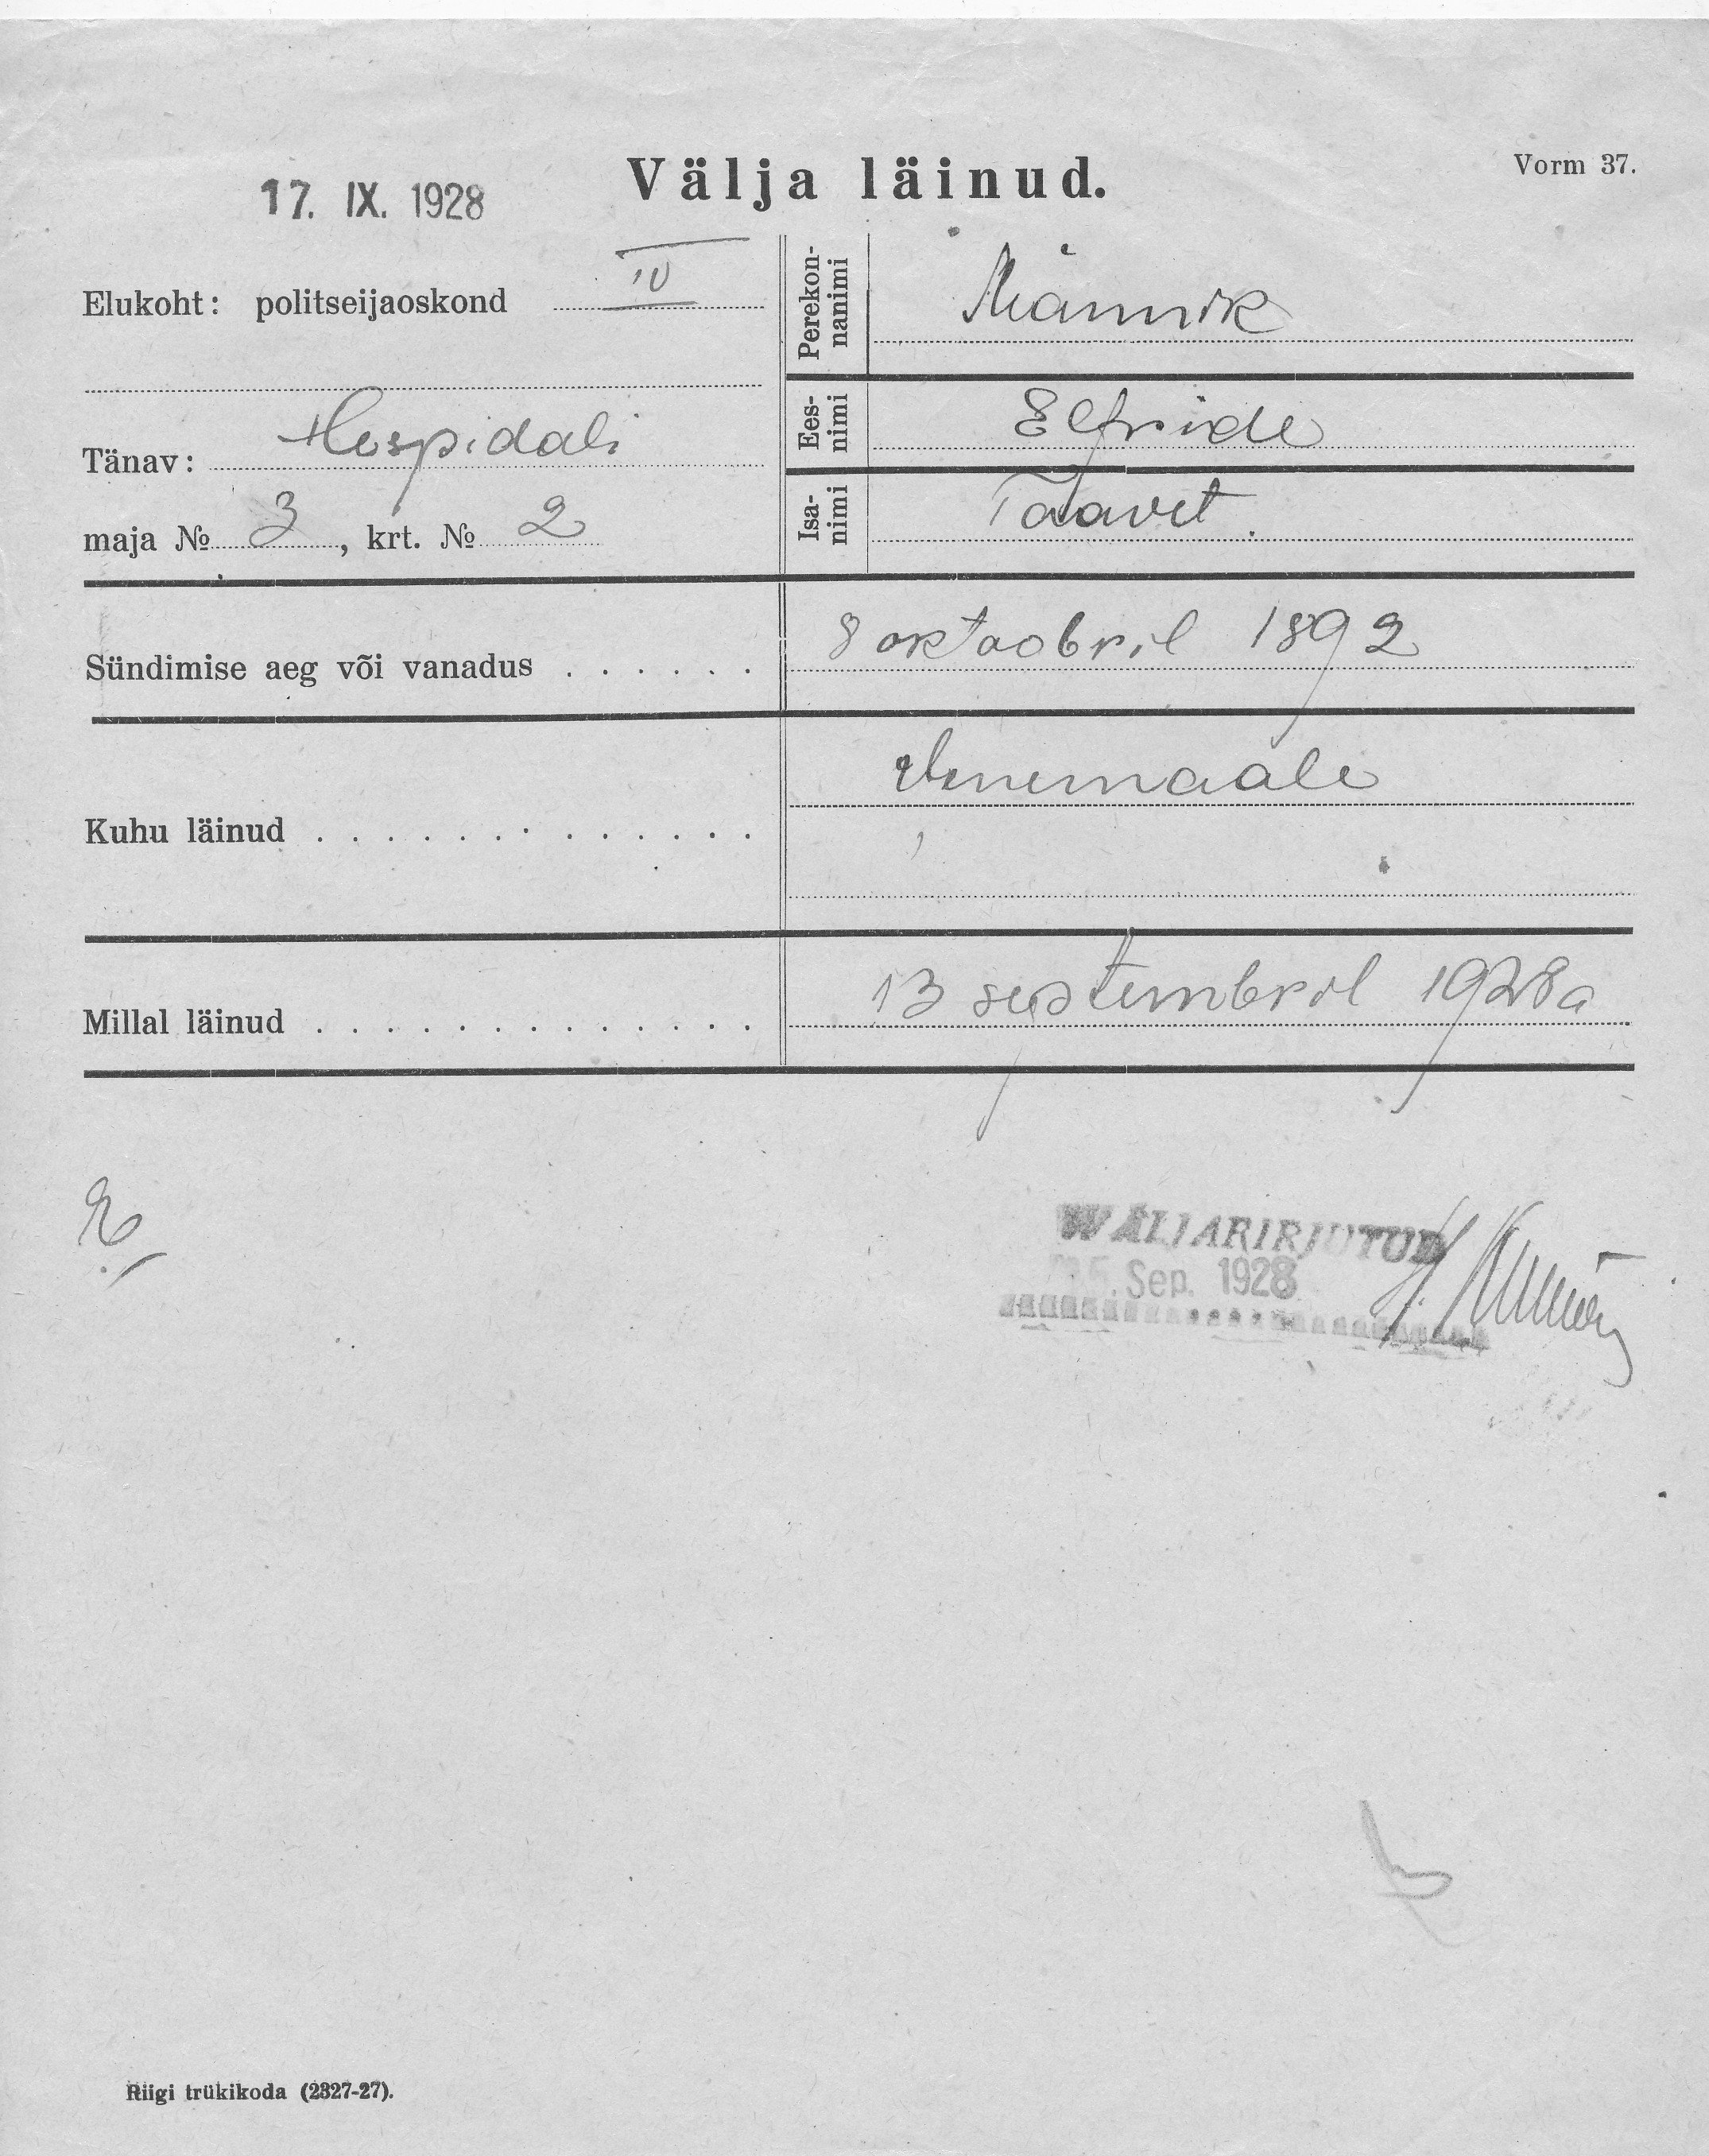 Välja läinud.
Vorm 37.
17. IX. 1928
Elukoht: politseijaoskond IV
Tänav: Hospidali
maja № 3, krt. № 2
Perekon-
nanimi
Männik
Ees-
nimi
Elfride
Isa-
nimi
Taavet.
Sündimise aeg või vanadus . . . . . . 8 oktoobril 1892
Kuhu läinud . . . . . . . . . . . . . . Venemaale
Millal läinud . . . . . . . . . . . . . . 13 septembril 1928 a
WÄLJAKIRJUTUD
Sep. 1928
Riigi trükikoda (2327-27).